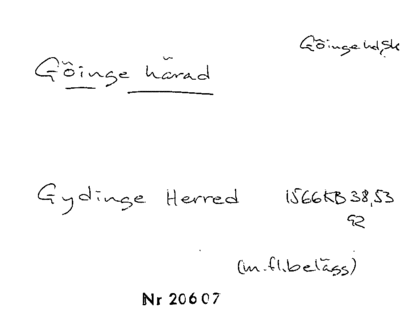 Göinge hd, Sk
Göinge härad
Gydinge Herred 1566 KB 38, 53
92
(m.fl.belägg)
Nr 20607